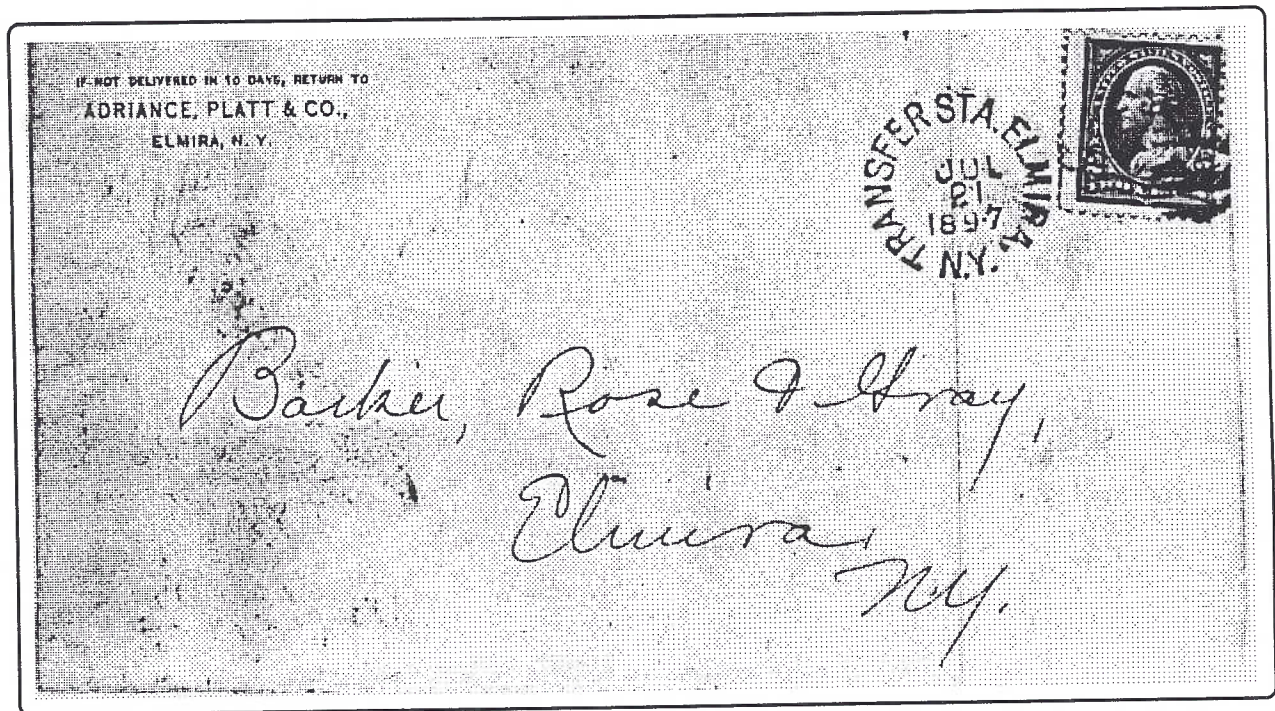 IF NOT DELIVERED IN 10 DAYS, RETURN TO
ADRIANCE, PLATT & CO.,
ELMIRA, N. Y.
TRANSFER STA. ELMIRA, N.Y.
JUL
21
1897
Barker, Rose & Gray,
Elmira,
N.Y.